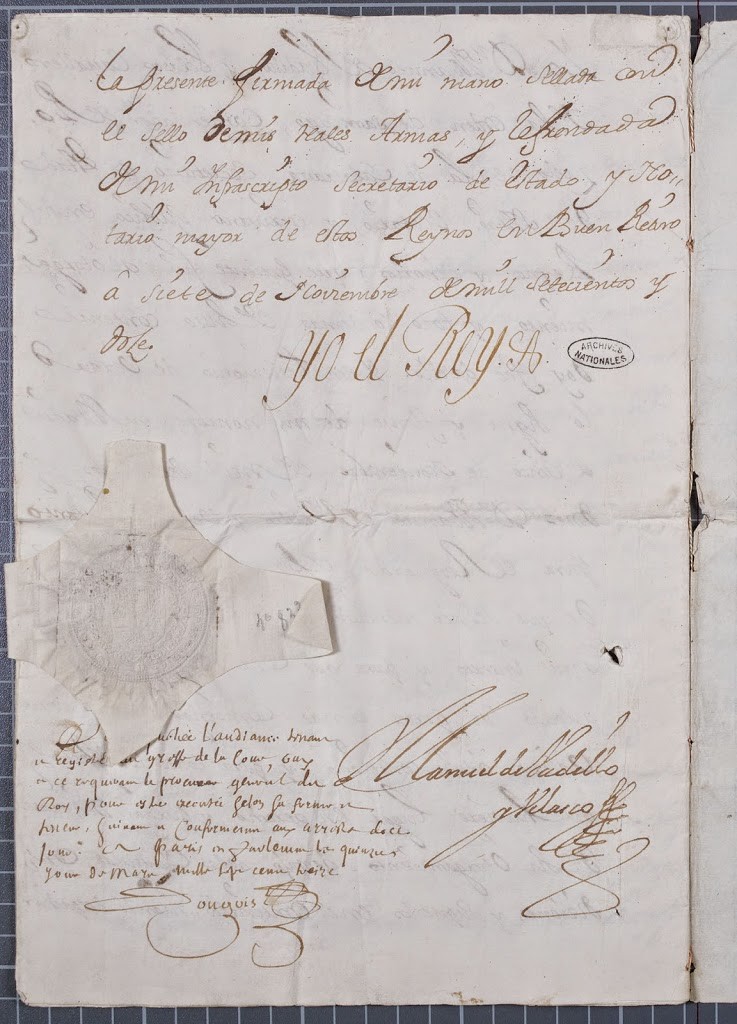 la presente firmada de mi mano sellada con
el sello de mis reales Armas, y refrendada
de mi Infrascripto secretario de estado y No-
tario mayor de estos Reynos en Buen Retiro
a siete de Noviembre de mill setecientos y
doze.
yo el Rey.
ARCHIVES
NATIONALES
nº 820
l'audiance
registré au greffe de la Cour, ouy
et ce requerant le procureur general du
Roy, pour estre executée selon sa forme et
teneur, suivant et Conformement aux arrests de ce
jour. a paris en parlement le quinze
jour de Mars, mille sept cent treize
Dongois
Manuel de Vadillo
y Velasco